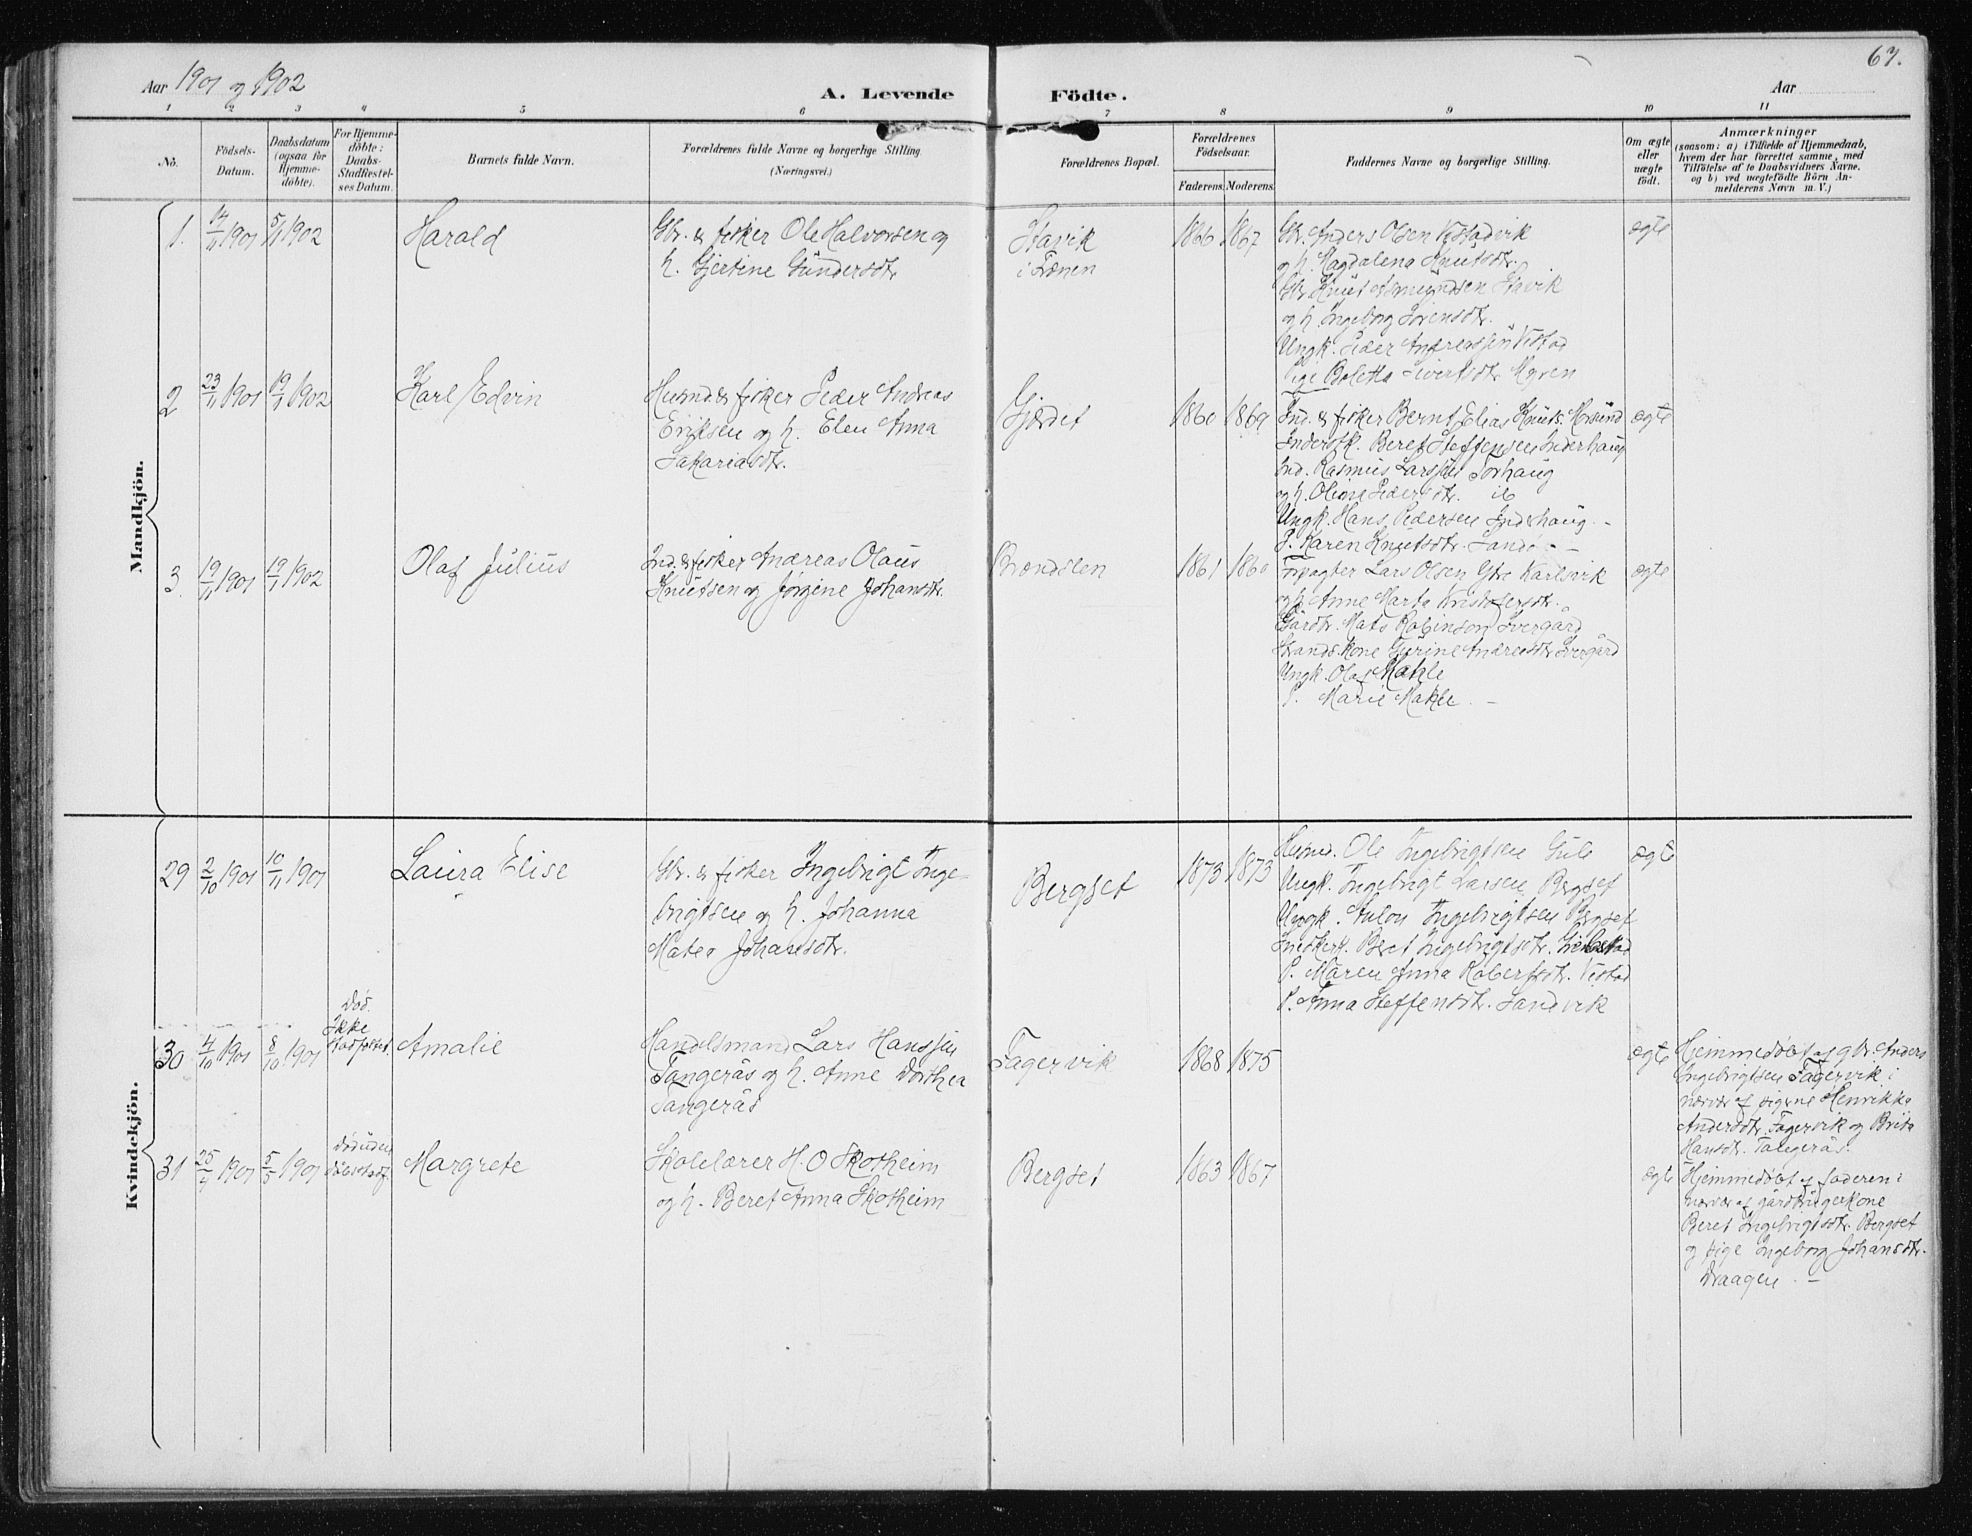 67.
Aar 1901 og 1902
A. Levende Födte.
Aar
1 2 3 4 5 6 7 8 9 10 11
No.
Födsels-Datum.
Daabsdatum (ogsaa for Hjemme-döbte).
For Hjemme-döbte: Daabs-Stadfæstel-ses Datum.
Barnets fulde Navn.
Forældrenes fulde Navne og borgerlige Stilling. (Næringsvei.)
Forældrenes Bopæl.
Forældrenes Födselsaar.
Faderens. Moderens.
Faddernes Navne og borgerlige Stilling.
Om ægte eller uægte födt.
Anmærkninger
(saasom: a) i Tilfælde af Hjemmedaab, hvem der har forrettet samme, med Tilföielse af to Daabsvidners Navne. og b) ved uægtefödte Börn An-melderens Navn m. V.)
Mandkjön.
1. 14/11 1901 5/1 1902 Harald
Gbr. & fisker Ole Halvorsen og
h. Gjertine Gundersdtr.
Stavik
i Tænen
1866 1867
Gbr. Anders Olsen Vistadvik
og h. Magdalena Knutsdtr.
Gbr. Knut Asmundsen Stavik
og h. Ingeborg Sørensdtr.
Ungk. Peder Andreassen Vistad
Pige Boletta Sivertsdtr. Myren
ægte
2 23/11 1901 19/1 1902 Karl Edvin
Husmd & fisker Peder Andreas
Eriksen og h. Elen Anna
Sakariasdtr.
Gjerdet
1860 1869
Ind. & fisker Bernt Elias Knuts.
Beret Steffensen Inderhaug
Ind. Rasmus Larssen Torhaug
og h. Olina Pedersdtr. ib
Ungk. Hans Pedersen Inderhaug -
P. Karen Knutsdtr. Sandö - -
ægte
3 19/11 1901 19/1 1902 Olaf Julius
Ind. & fisker Andreas Olaus
Knutsen og Jørgine Johansdtr.
Brændslen
1861 1860
Forpagter Lars Olsen Ytre Karlsvik
og h. Anne Marta Kristofersdtr.
Gårdbr. Mats Robinson Svergård
Strands.kone Gurine Andreasdtr. Svergård
Ungk. Olaf Mahle
P. Marie Mahle. -
ægte
Kvindekjön.
29 2/10 1901 10/11 1901 Laura Elise
Gbr. & fisker Ingebrigt Inge-
brigtsen og h. Johanna
Matea Johansdtr.
Bergset
1873 1873
Husmd. Ole Ingebrigtsen Gule
Ungk. Ingebrigt Larsen Bergset
Ungk. Anton Ingebrigtsen Bergset
Beret Ingebrigtsdtr.
P. Maren Anna Robertsdtr. Vistad
P. Anna Steffensdtr. Sandvik
ægte
30 4/10 1901 8/10 1901
Död.
Ikke
stadfæstet.
Amalie
Handelsmand Lars Hanssen
Tangerås og h. Anne Dorthea
Tangerås
Fagervik
1868 1875
ægte
Hjemmedöbt af gbr. Anders
Ingebrigtsen Fagervik i
nærvær af pigerne Henrikke
Andersdtr. Fagervik og Brita
Hansdtr. Tangerås.
31 25/4 1901 5/5 1901
Död uden
Margrete
Skolelærer H. O Skotheim
og h. Beret Anna Skotheim
Bergset
1863 1867
ægte
Hjemmedöbt af faderen i
nærvær af gårdbrugerkone
Beret Ingebrigtsdtr. Bergset
og pige Ingeborg Johansdtr.
Draagen. -